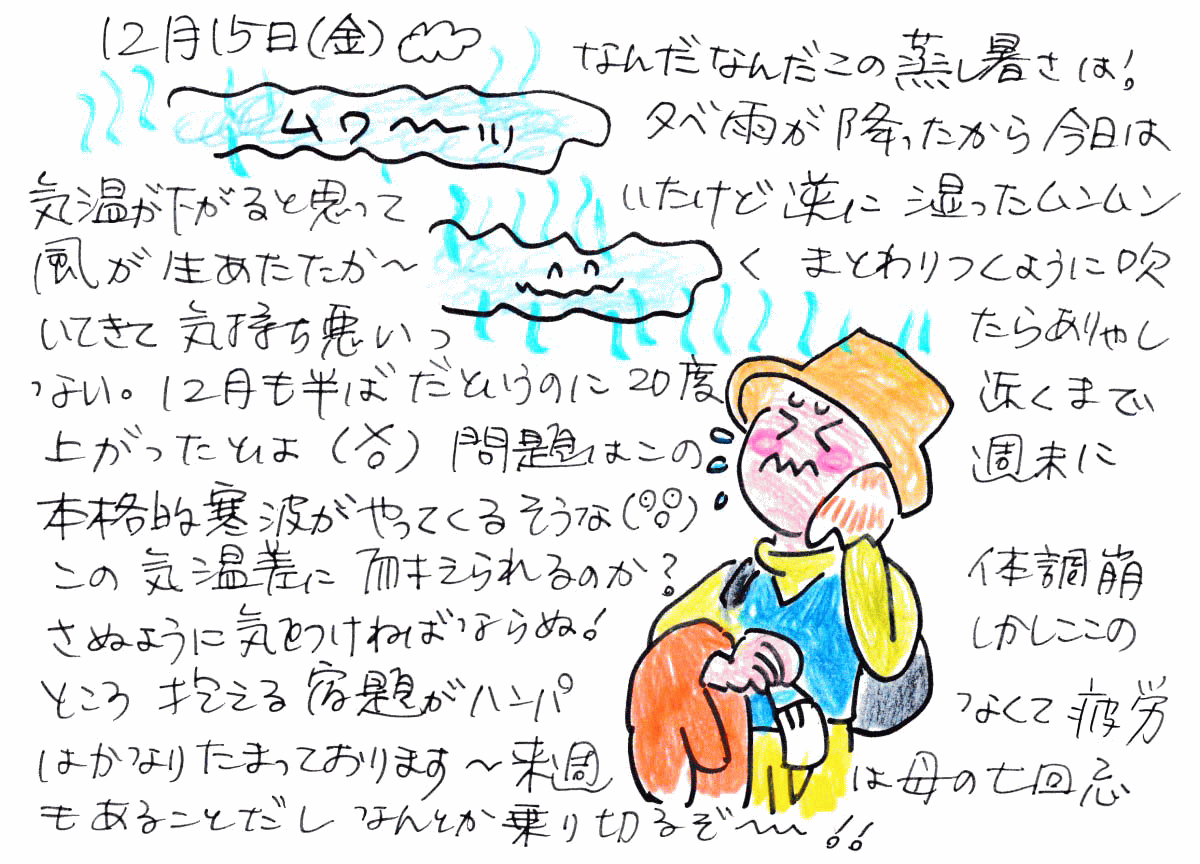 12月15日(金)
ムワ〜〜ッ
なんだなんだこの蒸し暑さは!
夕べ雨が降ったから今日は
気温が下がると思って いたけど逆に湿ったムンムン
風が生あたたか〜 く まとわりつくように吹
いてきて気持ち悪いっ たらありゃし
ない。12月も半ばだというのに20度 近くまで
上がったとは(>o<) 問題はこの 週末に
本格的寒波がやってくるそうな(゜o゜)
この気温差に耐えられるのか? 体調崩
さぬように気をつけねばならぬ! しかしここの
ところ抱える宿題がハンパ なくて疲労
はかなりたまっております〜来週 は母の七回忌
もあることだしなんとか乗り切るぞ〜〜!!